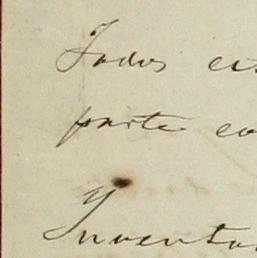 Todos es
parte co
Inventa